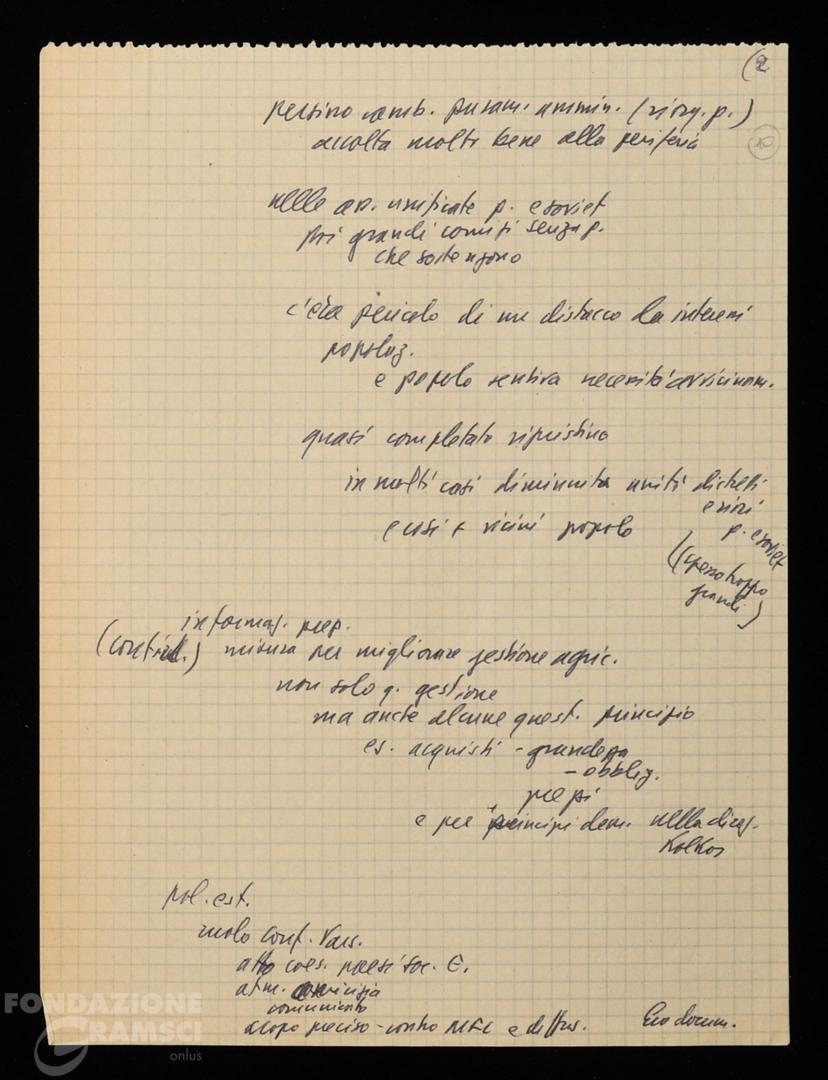 (2
10
persino camb. puram. ammin. (riorg. p.)
accolta molto bene alla periferia
nelle unificate p. e soviet
più grandi compiti senza p.
che sostengono
c'era pericolo di un distacco da interessi
popolaz.
e popolo sentiva necessità avvicinam.
quasi completato ripristino
in molti casi diminuita unità distretti
e p. e soviet
e così + vicini popolo
(spesso troppo
grandi)
informaz. prep.
misura per migliorare gestione agric.
non solo q. gestione
ma anche alcune quest. principio
es. acquisti - grandezza
- obblig.
prezzi
e per principi dem. nella direz.
Kolkos
pol. est.
ruolo conf. Vars.
atto coes. paesi soc. E.
atm. amicizia
scopo preciso - contro e
docum.
FONDAZIONE
GRAMSCI
onlus